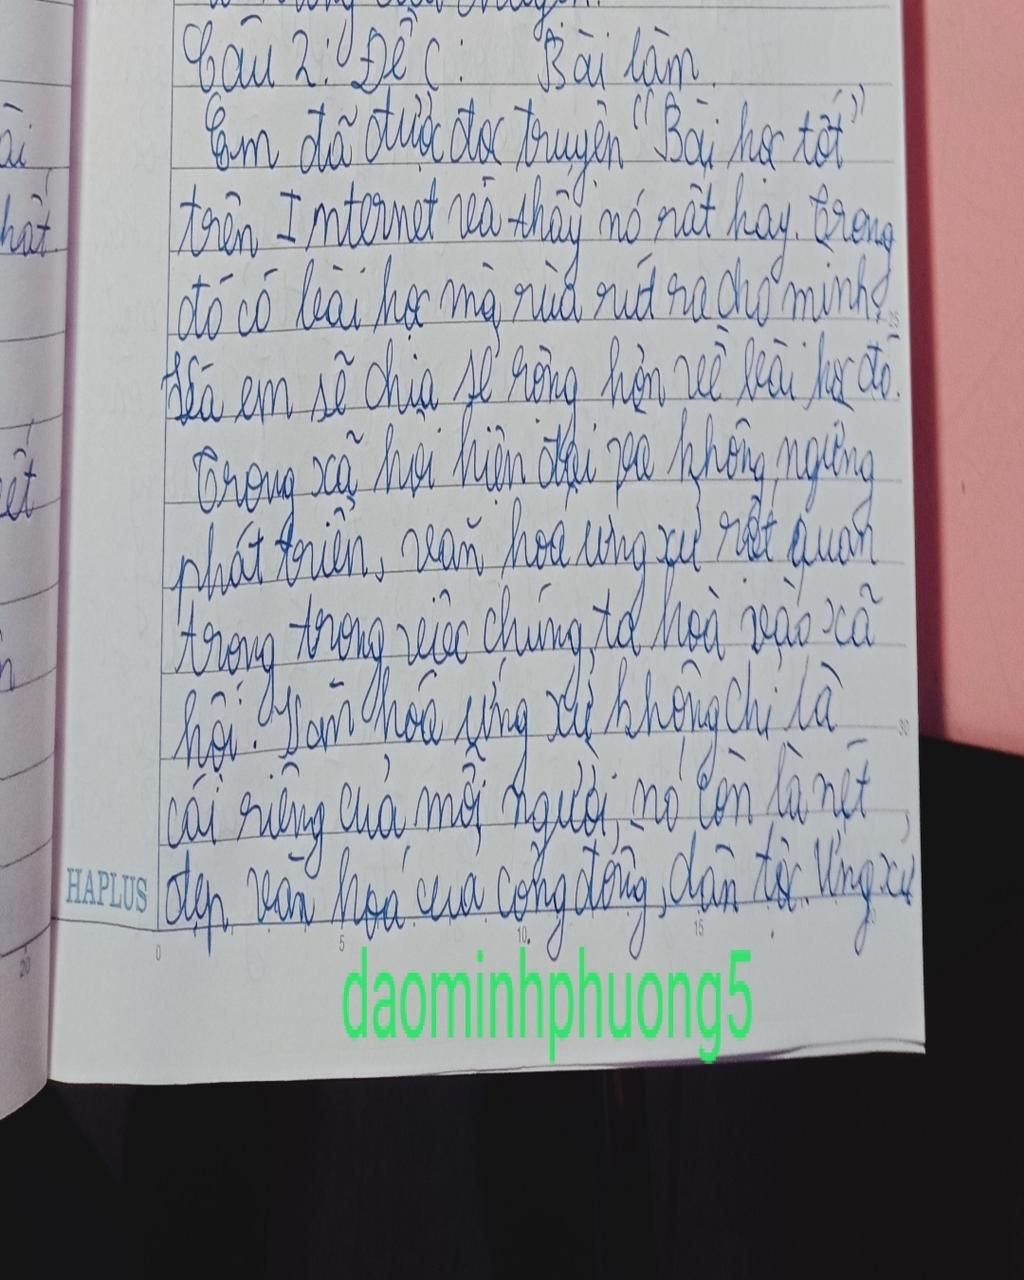 Câu 2: Đề C: Bài làm.
Em đã được đọc truyện "Bài học tốt"
trên Internet và thấy nó rất hay. Trong
đó có bài học mà rùa rút ra cho mình,
và em sẽ chia sẻ rộng hơn về bài học đó.
Trong xã hội hiện đại và không ngừng
phát triển, văn hoá ứng xử rất quan
trọng trong việc chúng ta hoà vào xã
hội. Văn hoá ứng xử không chỉ là
cái riêng của mỗi người, nó còn là nét
đẹp văn hoá của cộng đồng, dân tộc. Ứng xử
ài
hất
ết
HAPLUS
0 5 10 15
20
25
30
daominhphuong5